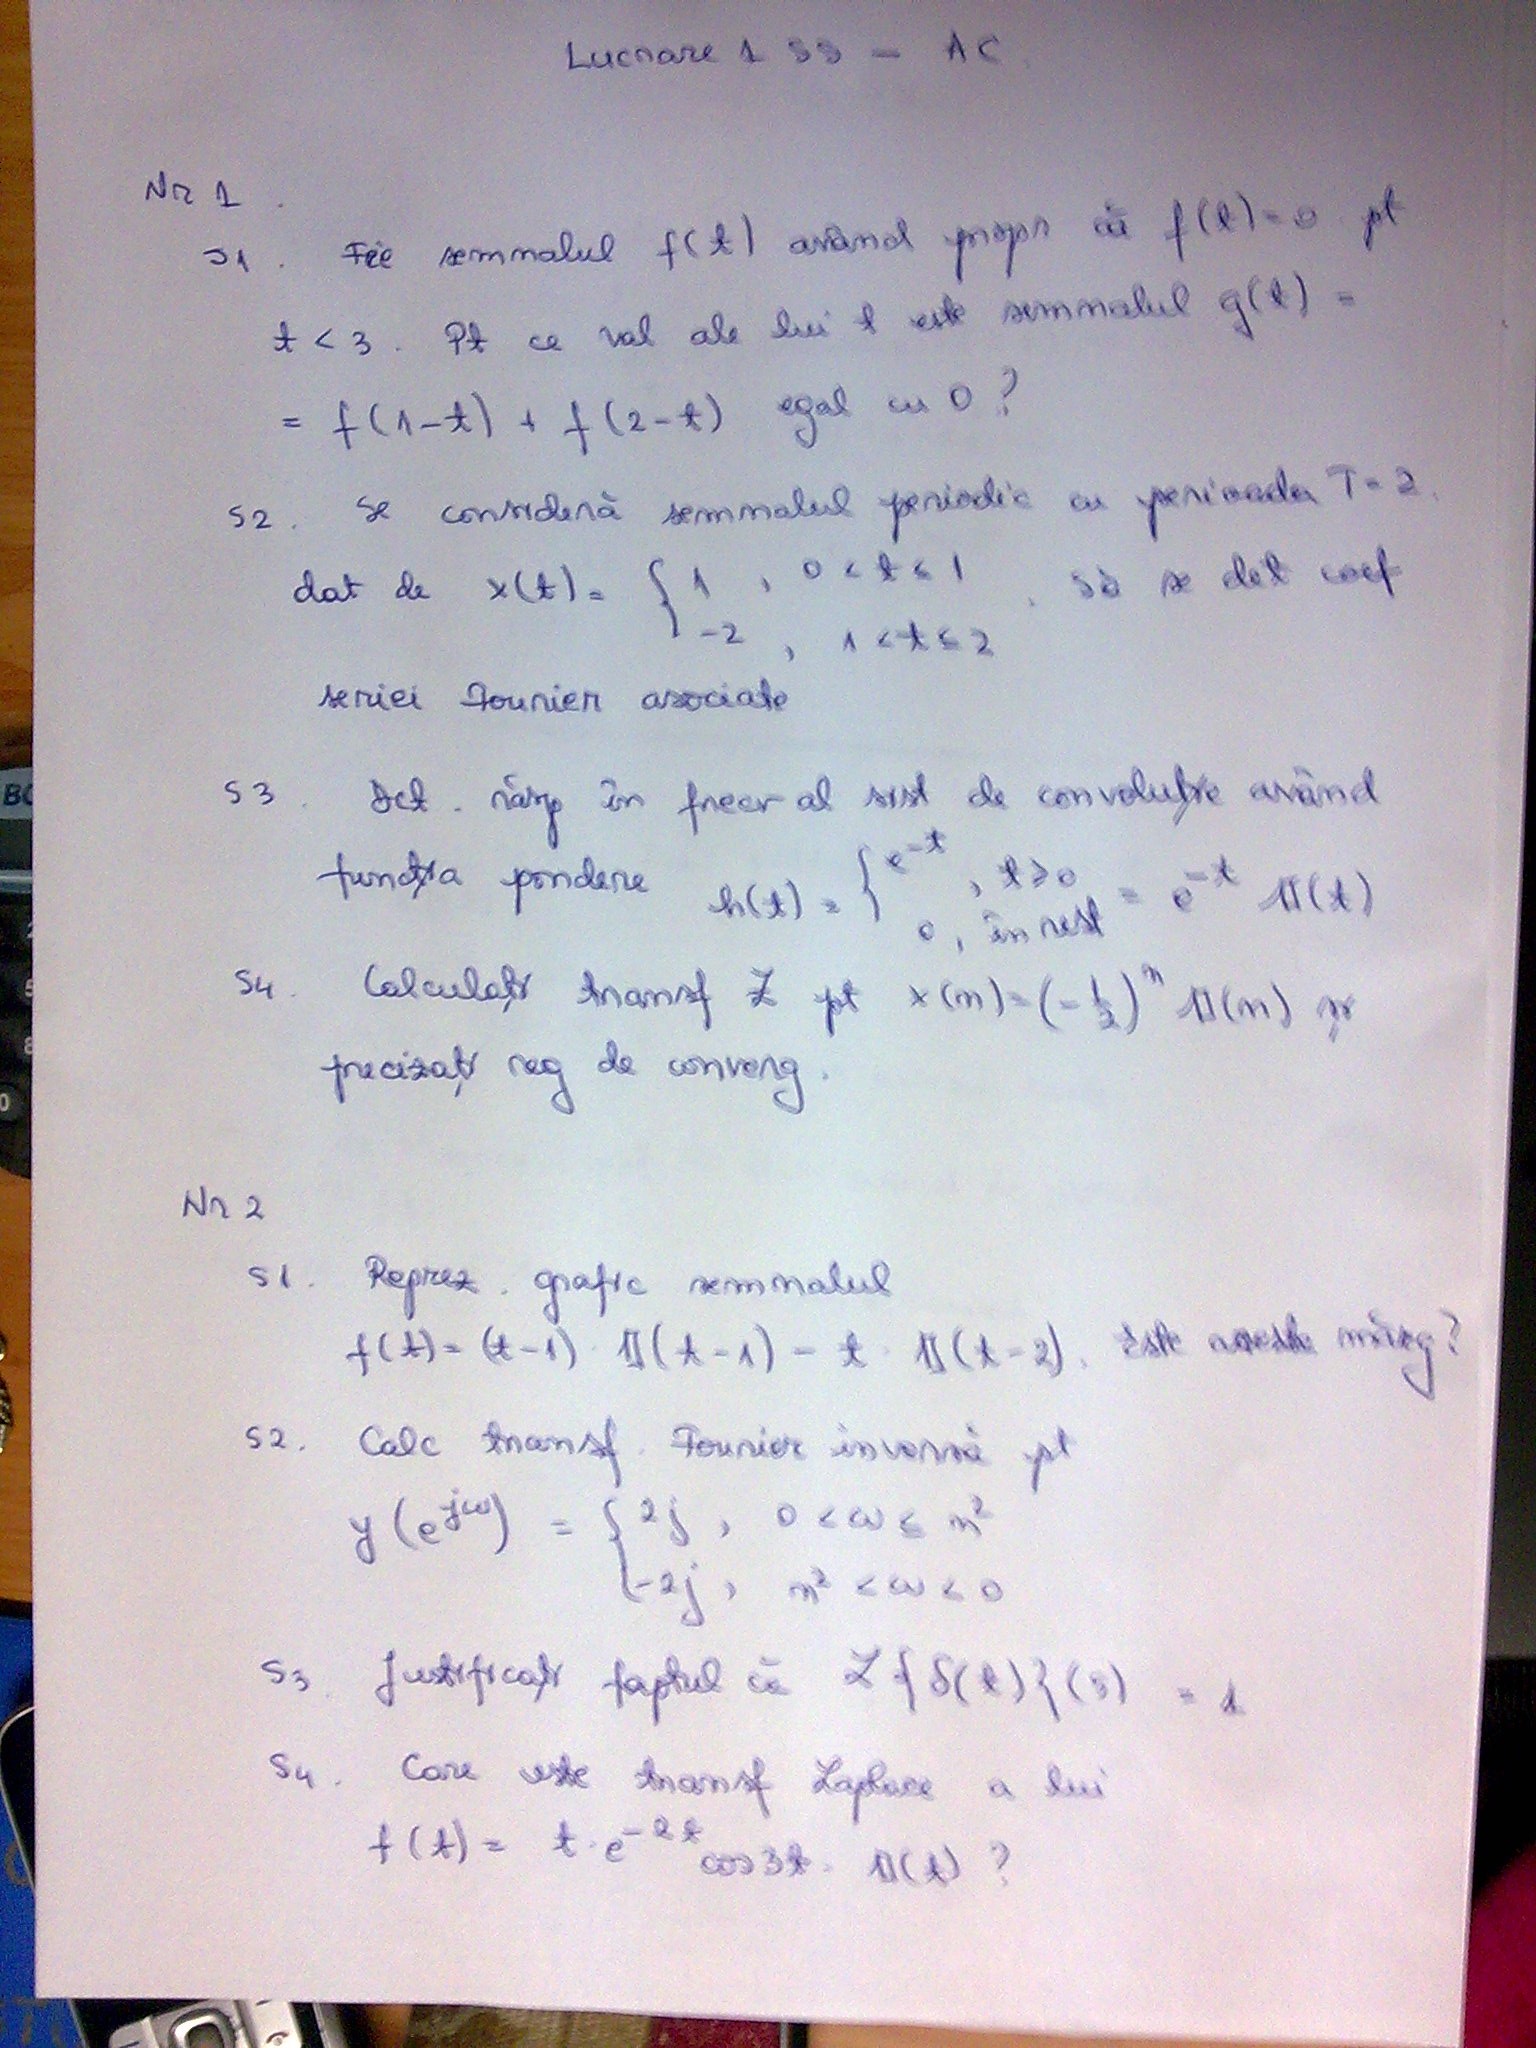 Lucrare 1 SS - AC.
Nr 1.
S1. Fie semnalul f(t) având propr că f(t)=0 pt
t < 3. Pt ce val ale lui t este semnalul g(t) =
= f(1-t) + f(2-t) egal cu 0?
S2. Se consideră semnalul periodic cu perioada T=2.
dat de x(t) = { 1 , 0 < t ≤ 1 . Să se det coef
-2 , 1 < t ≤ 2
seriei Fourier asociate
S3. Det. răsp în frecv al sist de convoluție având
funcția pondere h(t) = { e^{-t} , t ≥ 0 = e^{-t} 1(t)
0 , în rest
S4. Calculați transf Z pt x(n) = (-1/2)^n 1(n) și
precizați reg de converg.
Nr 2
S1. Reprez. grafic semnalul
f(t) = (t-1) · 1(t-1) - t · 1(t-2). Este acesta mărg?
S2. Calc transf. Fourier inversă pt
y(e^{jω}) = { 2j , 0 < ω ≤ π²
-2j , π² < ω < 0
S3. Justificați faptul că L{δ(t)}(s) = 1
S4. Care este transf Laplace a lui
f(t) = t · e^{-2t} cos3t · 1(t) ?